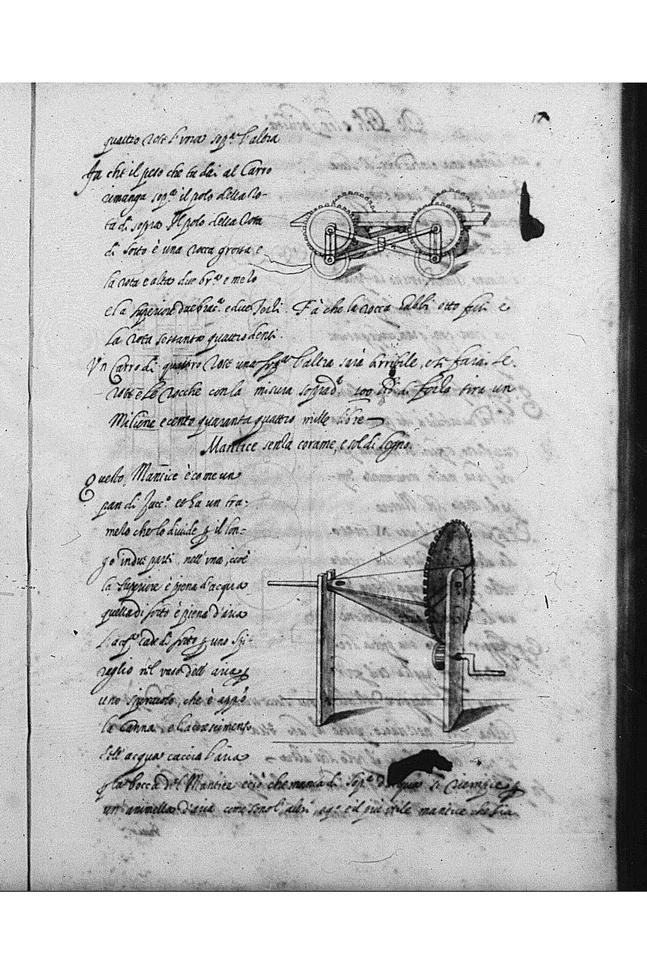 17
quattro rote l'una sop.ª l'altra
Fa che il peso che tu dai al Carro
rimanga sop.ª il polo della Ro-
ta di sopra Il polo della rota
di sotto è una rocca grossa e
la rota e alta due br.ª e mezo
e la superiore due brac.ª e due terzi Fa che la rocca habbi otto fusi e
La rota sessanta quattro denti.
Un Carro di quattro rote una sop.ª l'altra sarà terribile, et si farà. Le
rote e le rocche con la misura soprad.ª 100 di forza tira un
Milione e cento quaranta quattro mille libre
Mantice senza corame, e sol di legno.
Questo Mantice è come un
pan di Zucc.º et ha un tra-
mezo che lo divide p il lon-
go in due parti, nell'una, cioè
la superiore è piena d'acqua
quella di sotto è piena d'aria
L'acq.ª cade di sotto p uno spi-
raglio nel vaso dell'aria p
uno spiracolo, che è app.º
la canna, e l'accrescimento
dell'acqua caccia l'aria
p la bocca del Mantice e ciò che manca di sop.ª d'acqua si riempie p
un'animella d'aria come sono l'altri, ap.º ed più utile mantice che sia